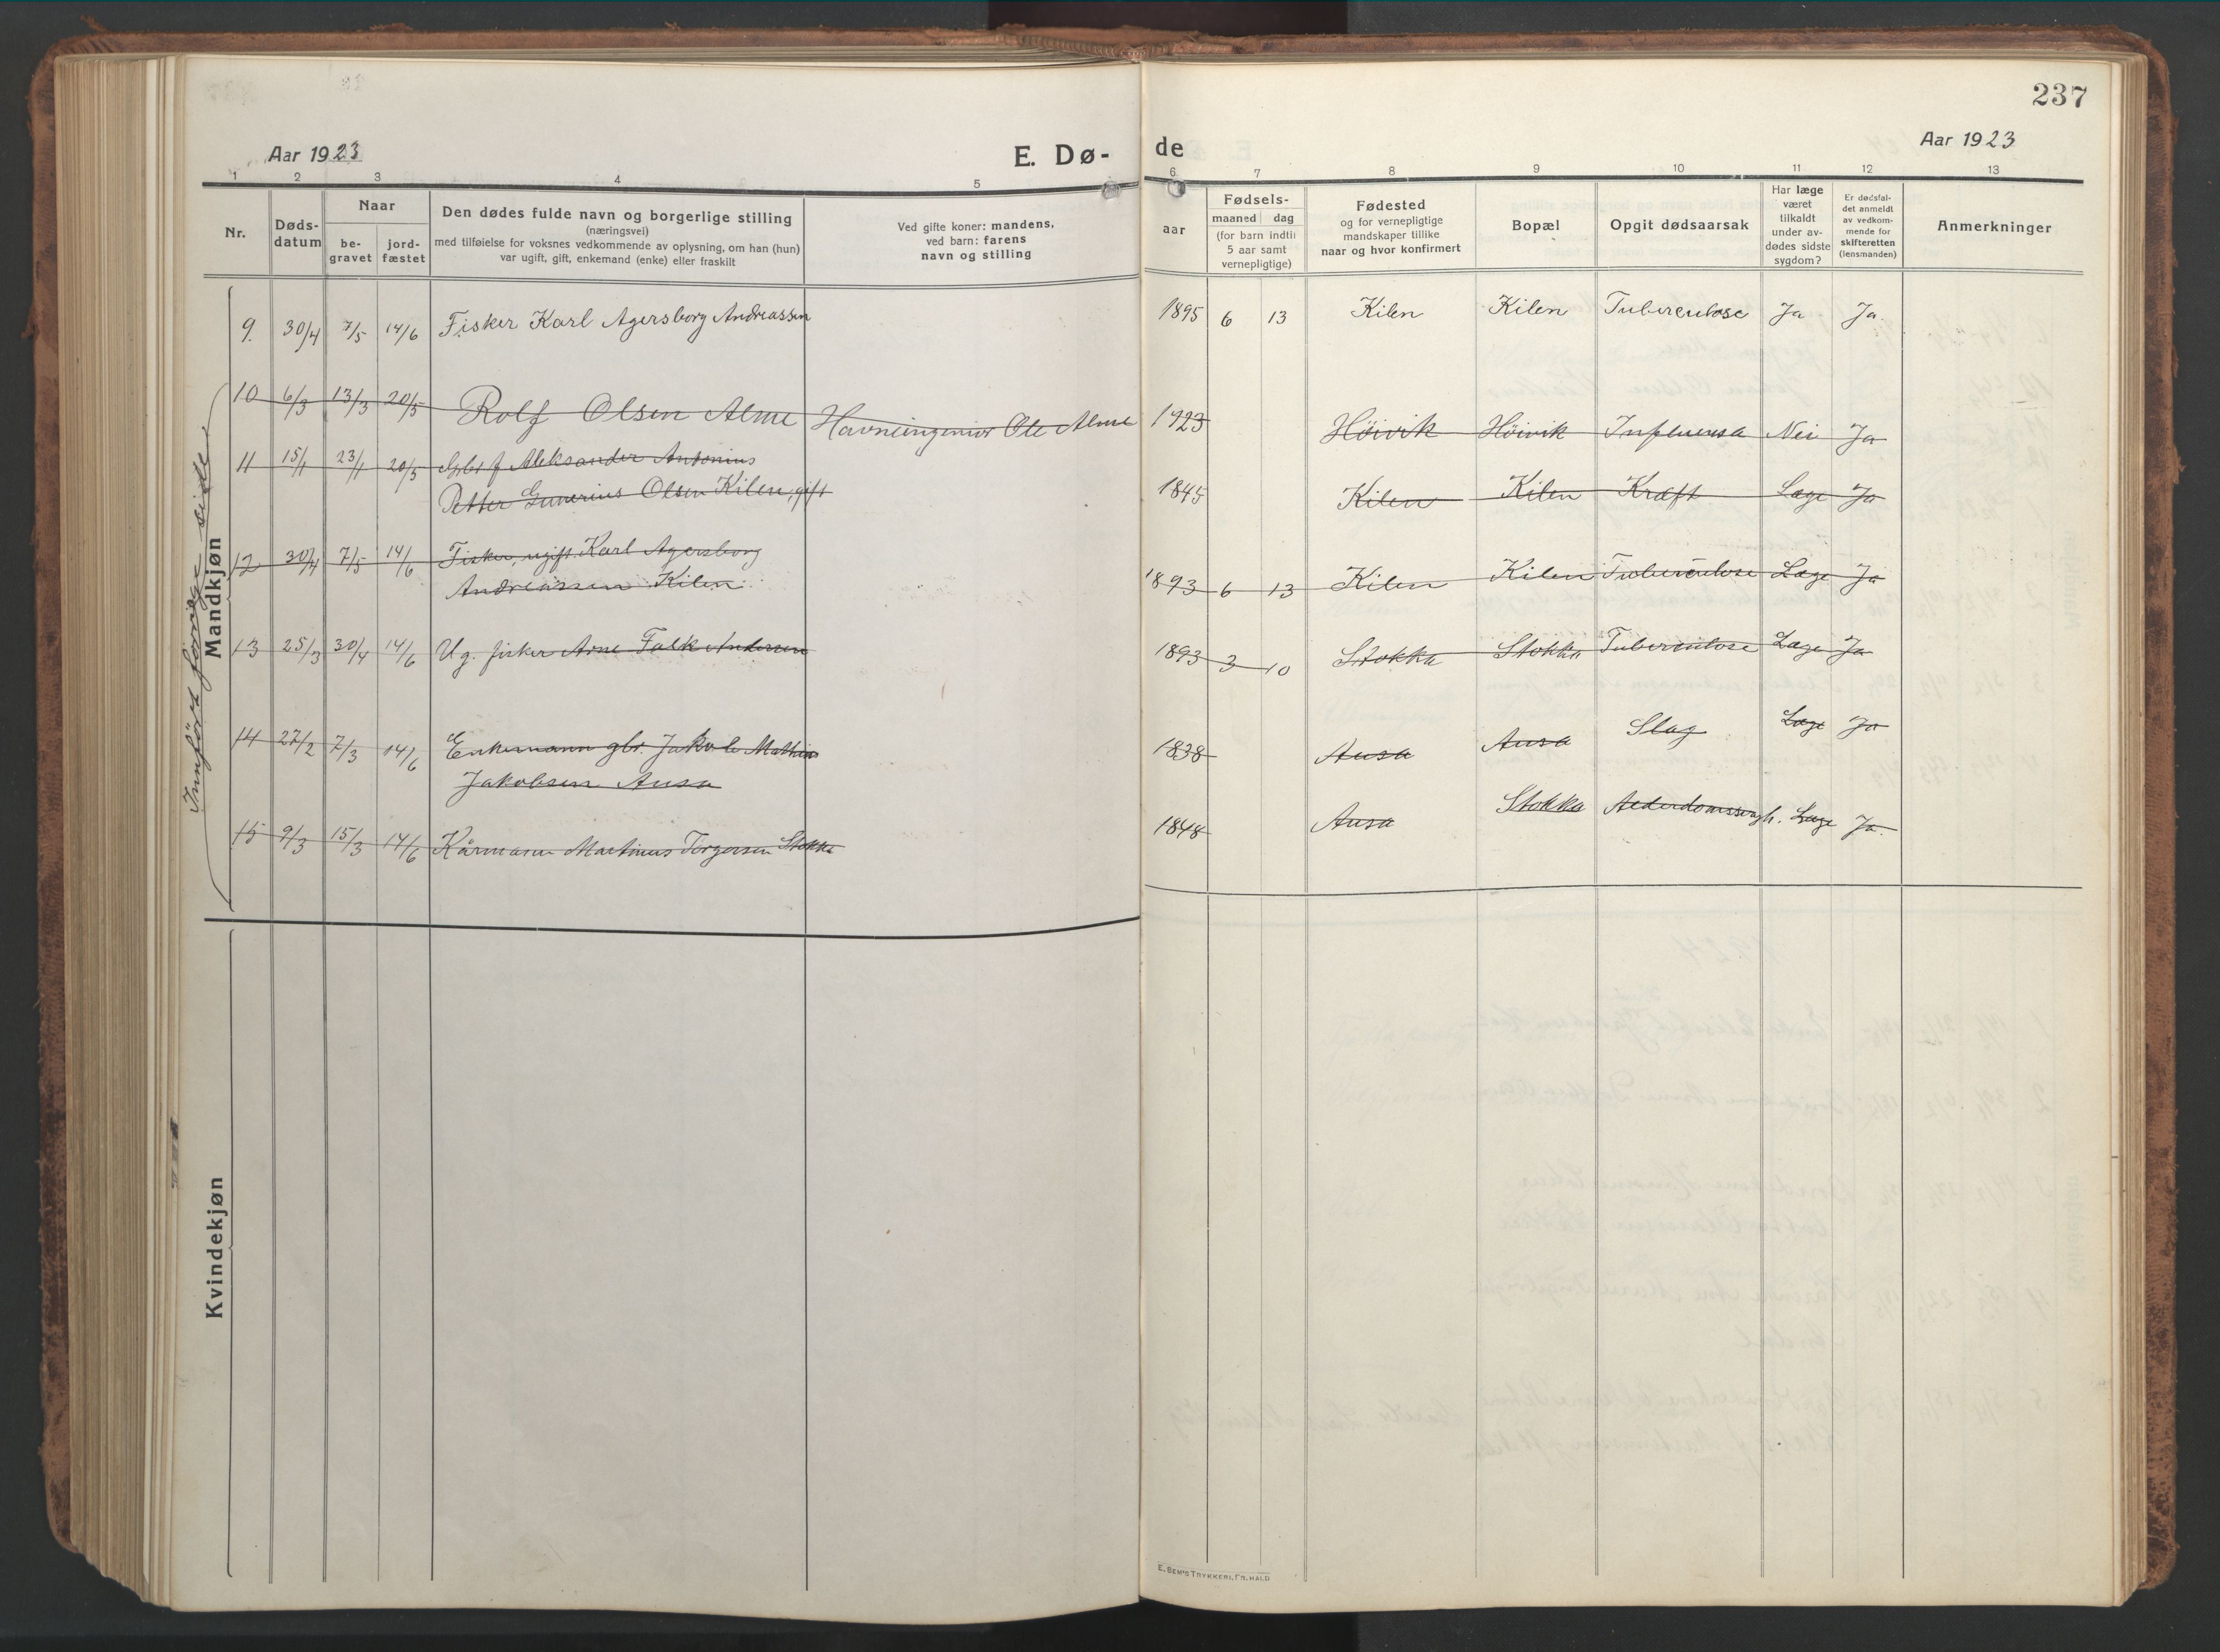 237
Aar 1923
E. Dø-
de
Aar 1923
1 2 3 4 5 6 7 8 9 10 11 12 13
Nr.
Døds-
datum
Naar
be-
gravet
jord-
fæstet
Den dødes fulde navn og borgerlige stilling
(næringsvei)
med tilføielse for voksnes vedkommende av oplysning, om han (hun)
var ugift, gift, enkemand (enke) eller fraskilt
Ved gifte koner: mandens,
ved barn: farens
navn og stilling
aar
Fødsels-
maaned dag
(for barn indtil
5 aar samt
vernepligtige)
Fødested
og for vernepligtige
mandskaper tillike
naar og hvor konfirmert
Bopæl
Opgit dødsaarsak
Har læge
været
tilkaldt
under av-
dødes sidste
sygdom?
Er dødsfal-
det anmeldt
av vedkom-
mende for
skifteretten
(lensmanden)
Anmerkninger
Mandkjøn
Innført forrige side
9. 30/4 7/5 14/6 Fisker Karl Agersborg Andreassen 1895 6 13 Kilen Kilen Tuberculose Ja Ja.
10 6/3 13/3 20/5 Rolf Olsen Alme Havneingeniør Ole Alme 1923 Höivik Höivik Influensa Nei Ja
11 15/1 23/1 20/5 Aleksander Antonius
Petter Gunerius Olsen Kilen, gift 1845 Kilen Kilen Kræft Læge Ja
12 30/4 7/5 14/6 Fisker, ugift Karl Agersborg
Andreassen Kilen 1893 6 13 Kilen Kilen Tuberculose Læge Ja
13 25/3 30/4 14/6 Ug. fisker Arne Falk Andersen 1893 3 10 Stokka Stokka Tuberculose Læge Ja
14 27/2 7/3 14/6 Enkemann gbr. Jakob Mathias
Jakobsen Ausa 1838 Ausa Ausa Slag Læge Ja
15 9/3 15/3 14/6 Kårmann Martinus Torgersen Stokka 1848 Ausa Stokka Læge Ja.
Kvindekjøn
E. SEM'S TRYKKERI, FR.HALD